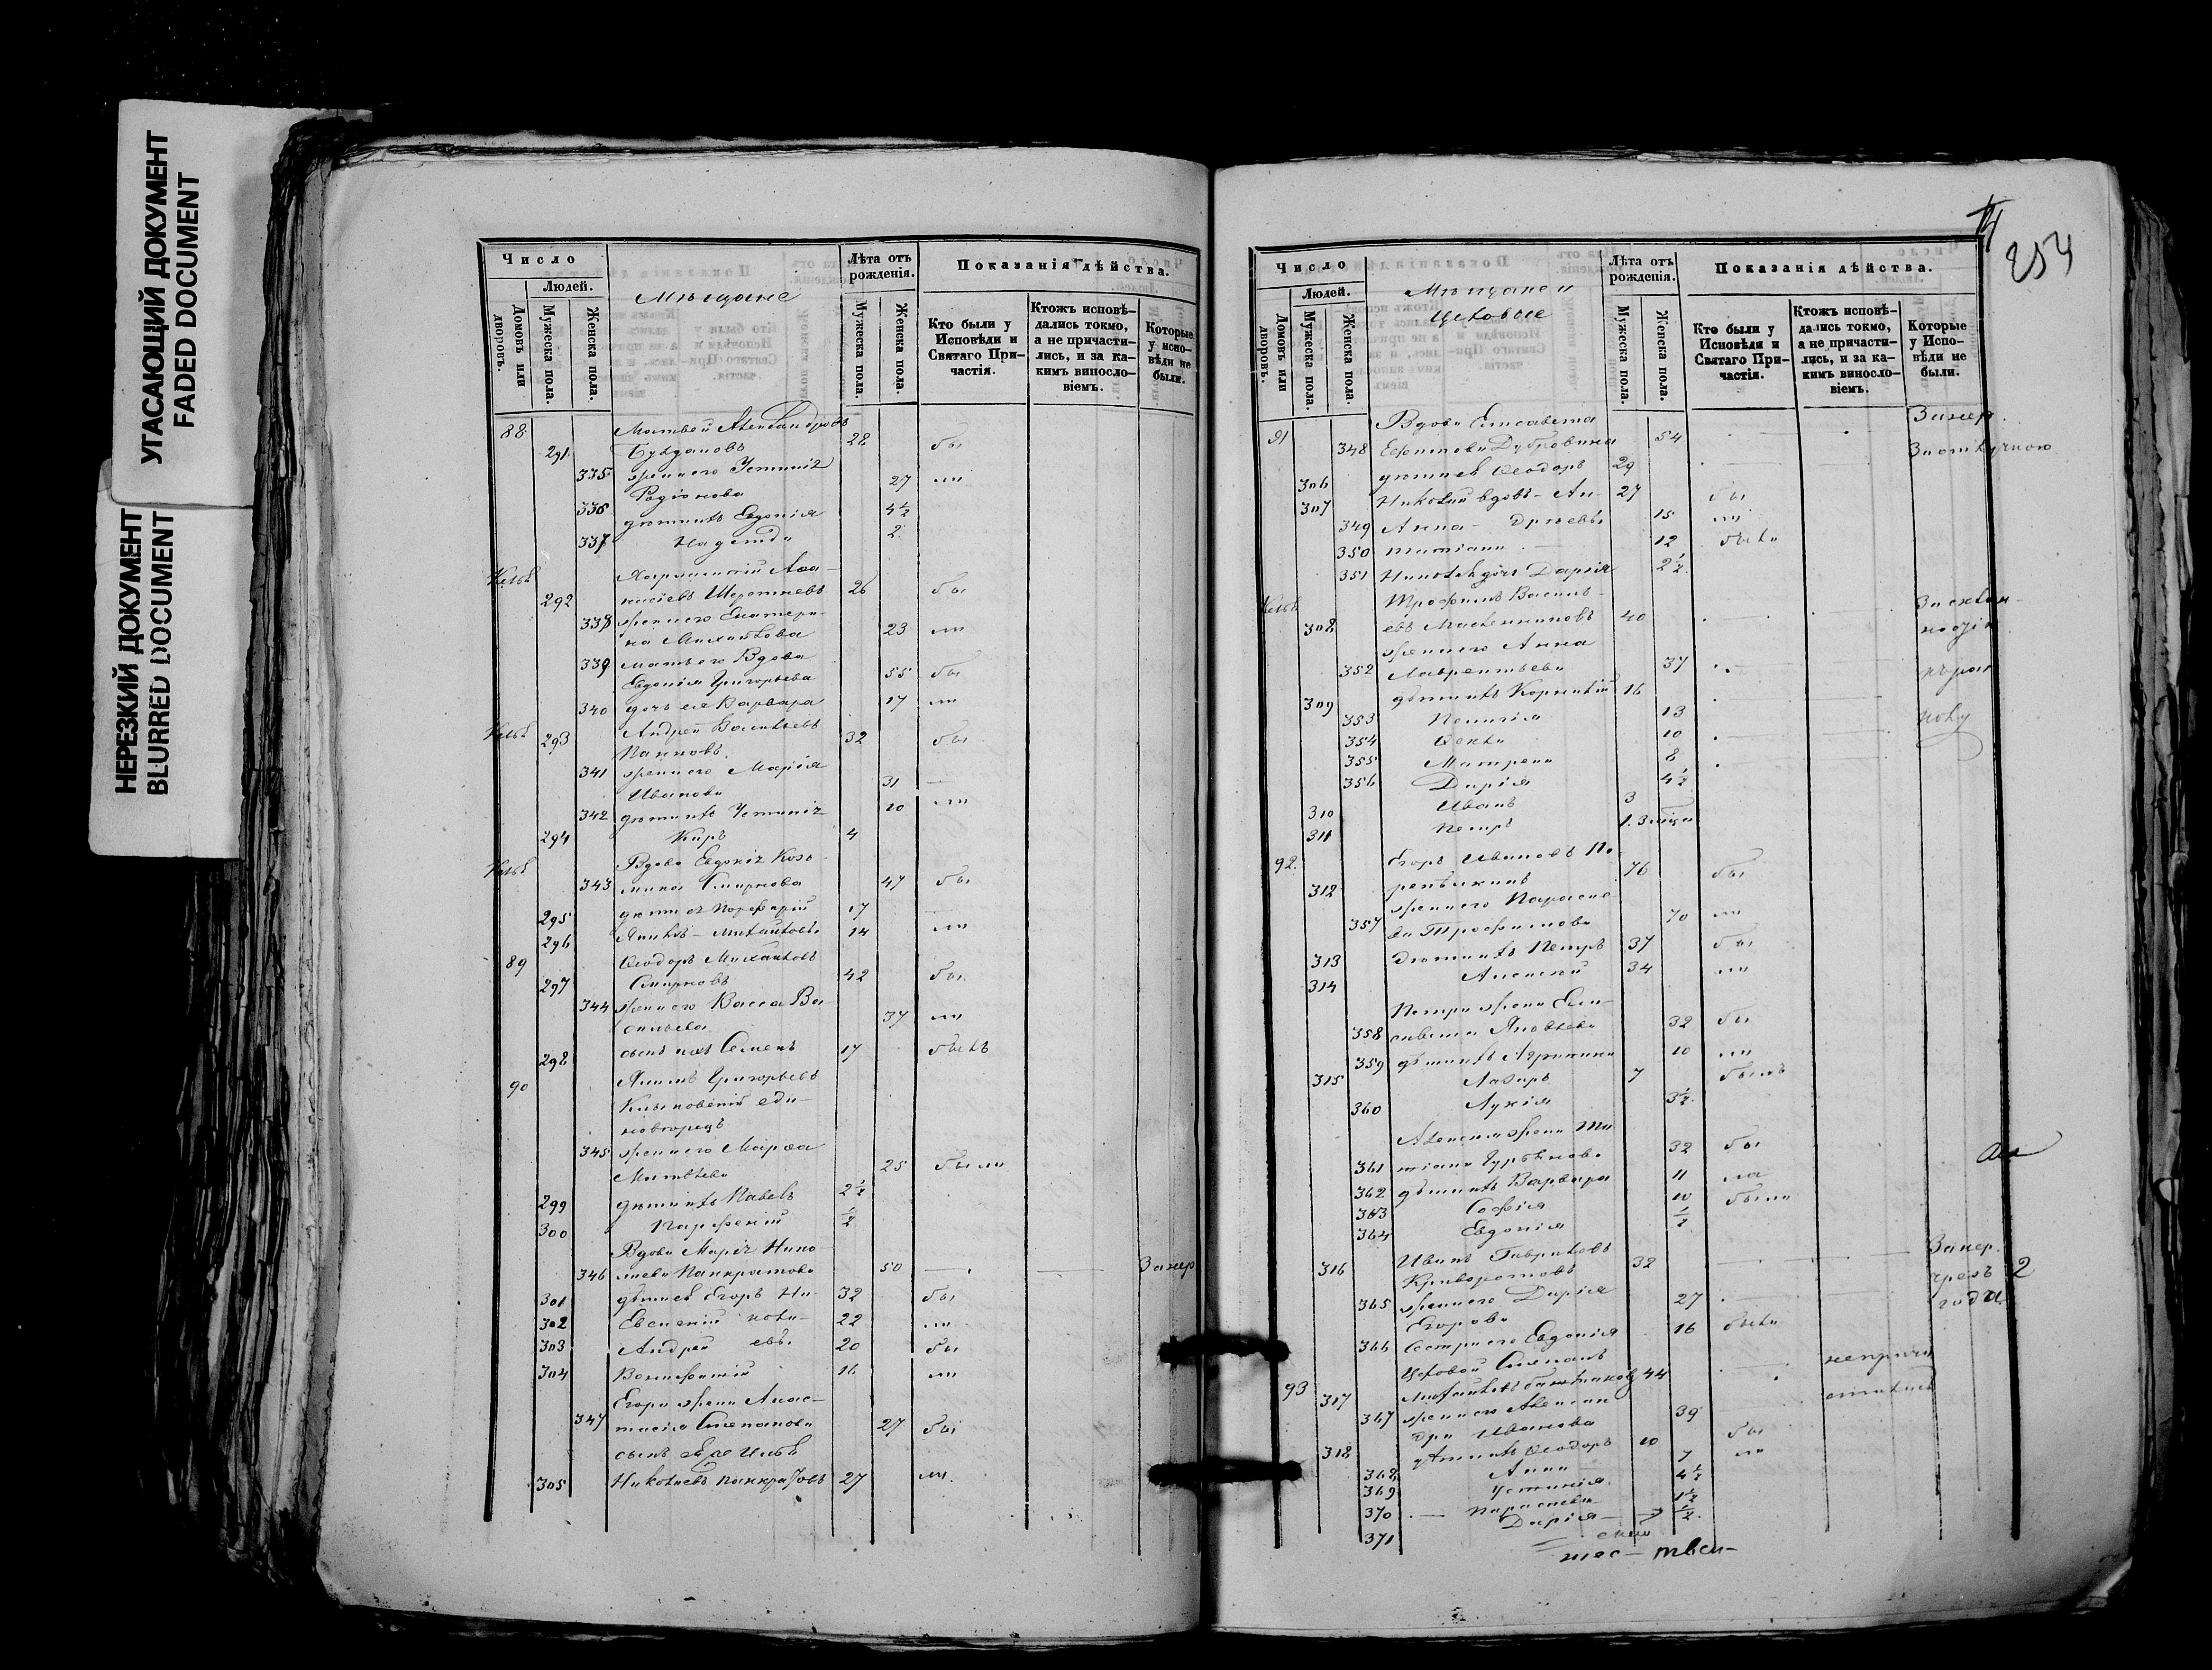 УГАСАЮЩИЙ ДОКУМЕНТ
FADED DOCUMENT
НЕРЕЗКИЙ ДОКУМЕНТ
BLURRED DOCUMENT
Число
Людей.
Домовъ или дворовъ.
Мужеска пола.
Женска пола.
Мѣщане
Лѣта отъ рожденія.
Мужеска пола.
Женска пола.
Показанія дѣйства.
Кто были у Исповѣди и Святаго Причастія.
Ктожъ исповѣдались токмо, а не причастились, и за какимъ винословіемъ.
Которые у исповѣди не были.
88
291 Буздановъ 28 бы
335 жена его Устинія 27 ли
Родіонова
336 дѣти ихъ Евдокія 4½
337 Надежда 2
292 насіевъ Шереметевъ 26 бы
338 жена его Екатери-
на Михайлова 23 ли
339 мать его Вдова
Евдокія Григорьева 55 бы
340 дочь ея Варвара 17 ли
293 Андрей Васильевъ 32 бы
Панковъ
341 жена его Марія
Иванова 31
342 дѣти ихъ Устинія 10 ли
294 Киръ 4
Вдова Евдокія Козь-
343 мина Смирнова 47 бы
295 дѣти ея Порфирій 17
296 Яковъ – Михайловы 14 ли
89 Ѳеодоръ Михайловъ
297 Смирновъ 42 бы
344 жена его Васса Ва-
сильева 37 ли
298 сынъ ихъ Семенъ 17 былъ
90 Григорьевъ
еди-
новѣрецъ
345 жена его Марѳа
Матвѣева 25 были
299 дѣти ихъ Павелъ 2½
300 Парфеній ½
Вдова Марія Нико-
346 лаева Панкратова 50 За нер.
301 дѣти ея Егоръ Ни- 32 бы
302 Евгеній кола- 22 ли
303 Андрей евы. 20 бы
304 Вонифатій 16 ли
Егора жена Анас-
347 тасія Степанова 27 бы
305 Николаевъ Панкратовъ 27 ли
254
Число
Людей.
Домовъ или дворовъ.
Мужеска пола.
Женска пола.
Мѣщане и
Цеховые
Лѣта отъ рожденія.
Мужеска пола.
Женска пола.
Показанія дѣйства.
Кто были у Исповѣди и Святаго Причастія.
Ктожъ исповѣдались токмо, а не причастились, и за какимъ винословіемъ.
Которые у Исповѣди не были.
91 Вдова Елисавета За нер.
348 Ефимова Дубровина 54 За отлучкою
306 дѣти ея Ѳеодоръ 29
307 Николай вдовъ – Ан- 27 бы
349 Анна – дреевы 15 ли
350 Татіана 12 были
351 Дарія 2½
Трофимъ Василь-
308 евъ Масленниковъ 40
жена его Анна
352 Лаврентьева 37
309 дѣти ихъ Корнилій 16
353 Пелагія 13
354 Ѳекла 10
355 Матрена 8
356 Дарія 4½
310 Иванъ 3
311 Петръ
92. Егоръ Ивановъ По-
312 76 бы
жена его Параске-
357 ва Трофимова 70 ли
313 дѣти ихъ Петръ 37 бы
314 Алексѣй 34 ли
Петра жена Ели-
358 савета Яковлева 32 бы
359 дѣти ихъ Агрипина 10 ли
315 Лазарь 7 былъ
360 Лукія 3½
Алексѣя жена Та-
361 тіана Гурьянова 32 бы
362 дѣти ихъ Варвара 11 ли
363 Софія 10 были
364 Евдокія ½
316 Иванъ Гавриловъ 32 За нер.
Криворотовъ чрезъ 2
365 жена его Дарія 27 года
Егорова
366 Сестра его Евдокія 16 была
Цеховой Степанъ
93 317 44 не прича-
367 жена его Алексан- 39 стились
дра Иванова
318 дѣти ихъ Ѳеодоръ 10 бы
368 Анна 7 ли
369 Устинія 4½
370 Параскева 1½
371 Дарія ½